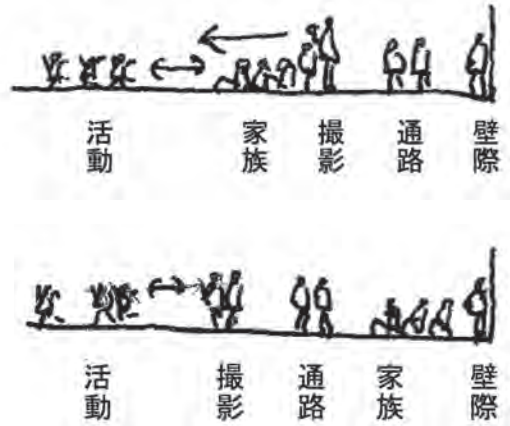 活動 家族 撮影 通路 壁際
活動 撮影 通路 家族 壁際